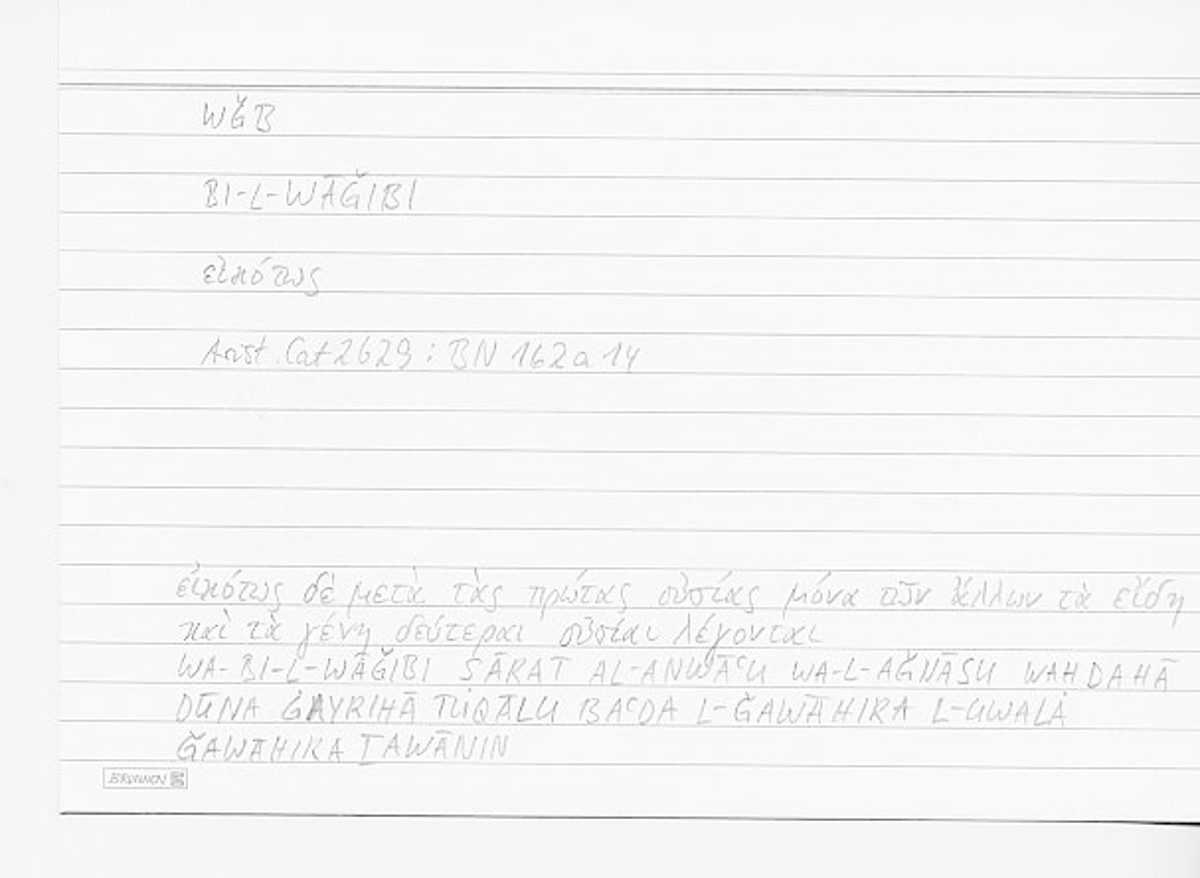 WǦB
BI-L-WĀǦIBI
εἰκότως
Arist. Cat 2b29 : BN 162a14
εἰκότως δὲ μετὰ τὰς πρώτας οὐσίας μόνα τῶν ἄλλων τὰ εἴδη
καὶ τὰ γένη δεύτεραι οὐσίαι λέγονται
WA-BI-L-WĀǦIBI ṢĀRAT AL-ANWĀʿU WA-L-AǦNĀSU WAḤDAHĀ
DŪNA ĠAYRIHĀ TUQĀLU BAʿDA L-ǦAWĀHIRA L-UWALĀ
ǦAWĀHIRA ṮAWĀNIN
BRUNNEN